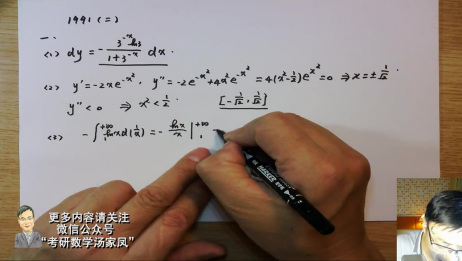 1991 (二)
一.
(1) dy = - 3^{-x} ln3 / (1+3^{-x}) dx.
(2) y' = -2xe^{-x²}, y'' = -2e^{-x²} + 4x²e^{-x²} = 4(x²-1/2)e^{-x²} = 0 ⇒ x = ± 1/√2
y'' < 0 ⇒ x² < 1/2 [-1/√2, 1/√2]
(3) - ∫₁^{+∞} lnx d(1/x) = - lnx/x |₁^{+∞}
更多内容请关注
微信公众号
“考研数学汤家凤”